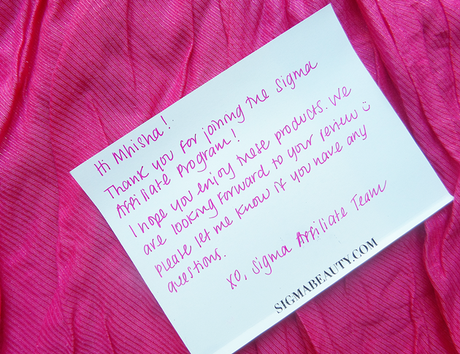 Hi Mhisha!
Thank you for joining the Sigma
Affiliate Program!
I hope you enjoy these products. We
are looking forward to your review ☺
Please let me know if you have any
questions.
xo, Sigma Affiliate Team
SIGMABEAUTY.COM